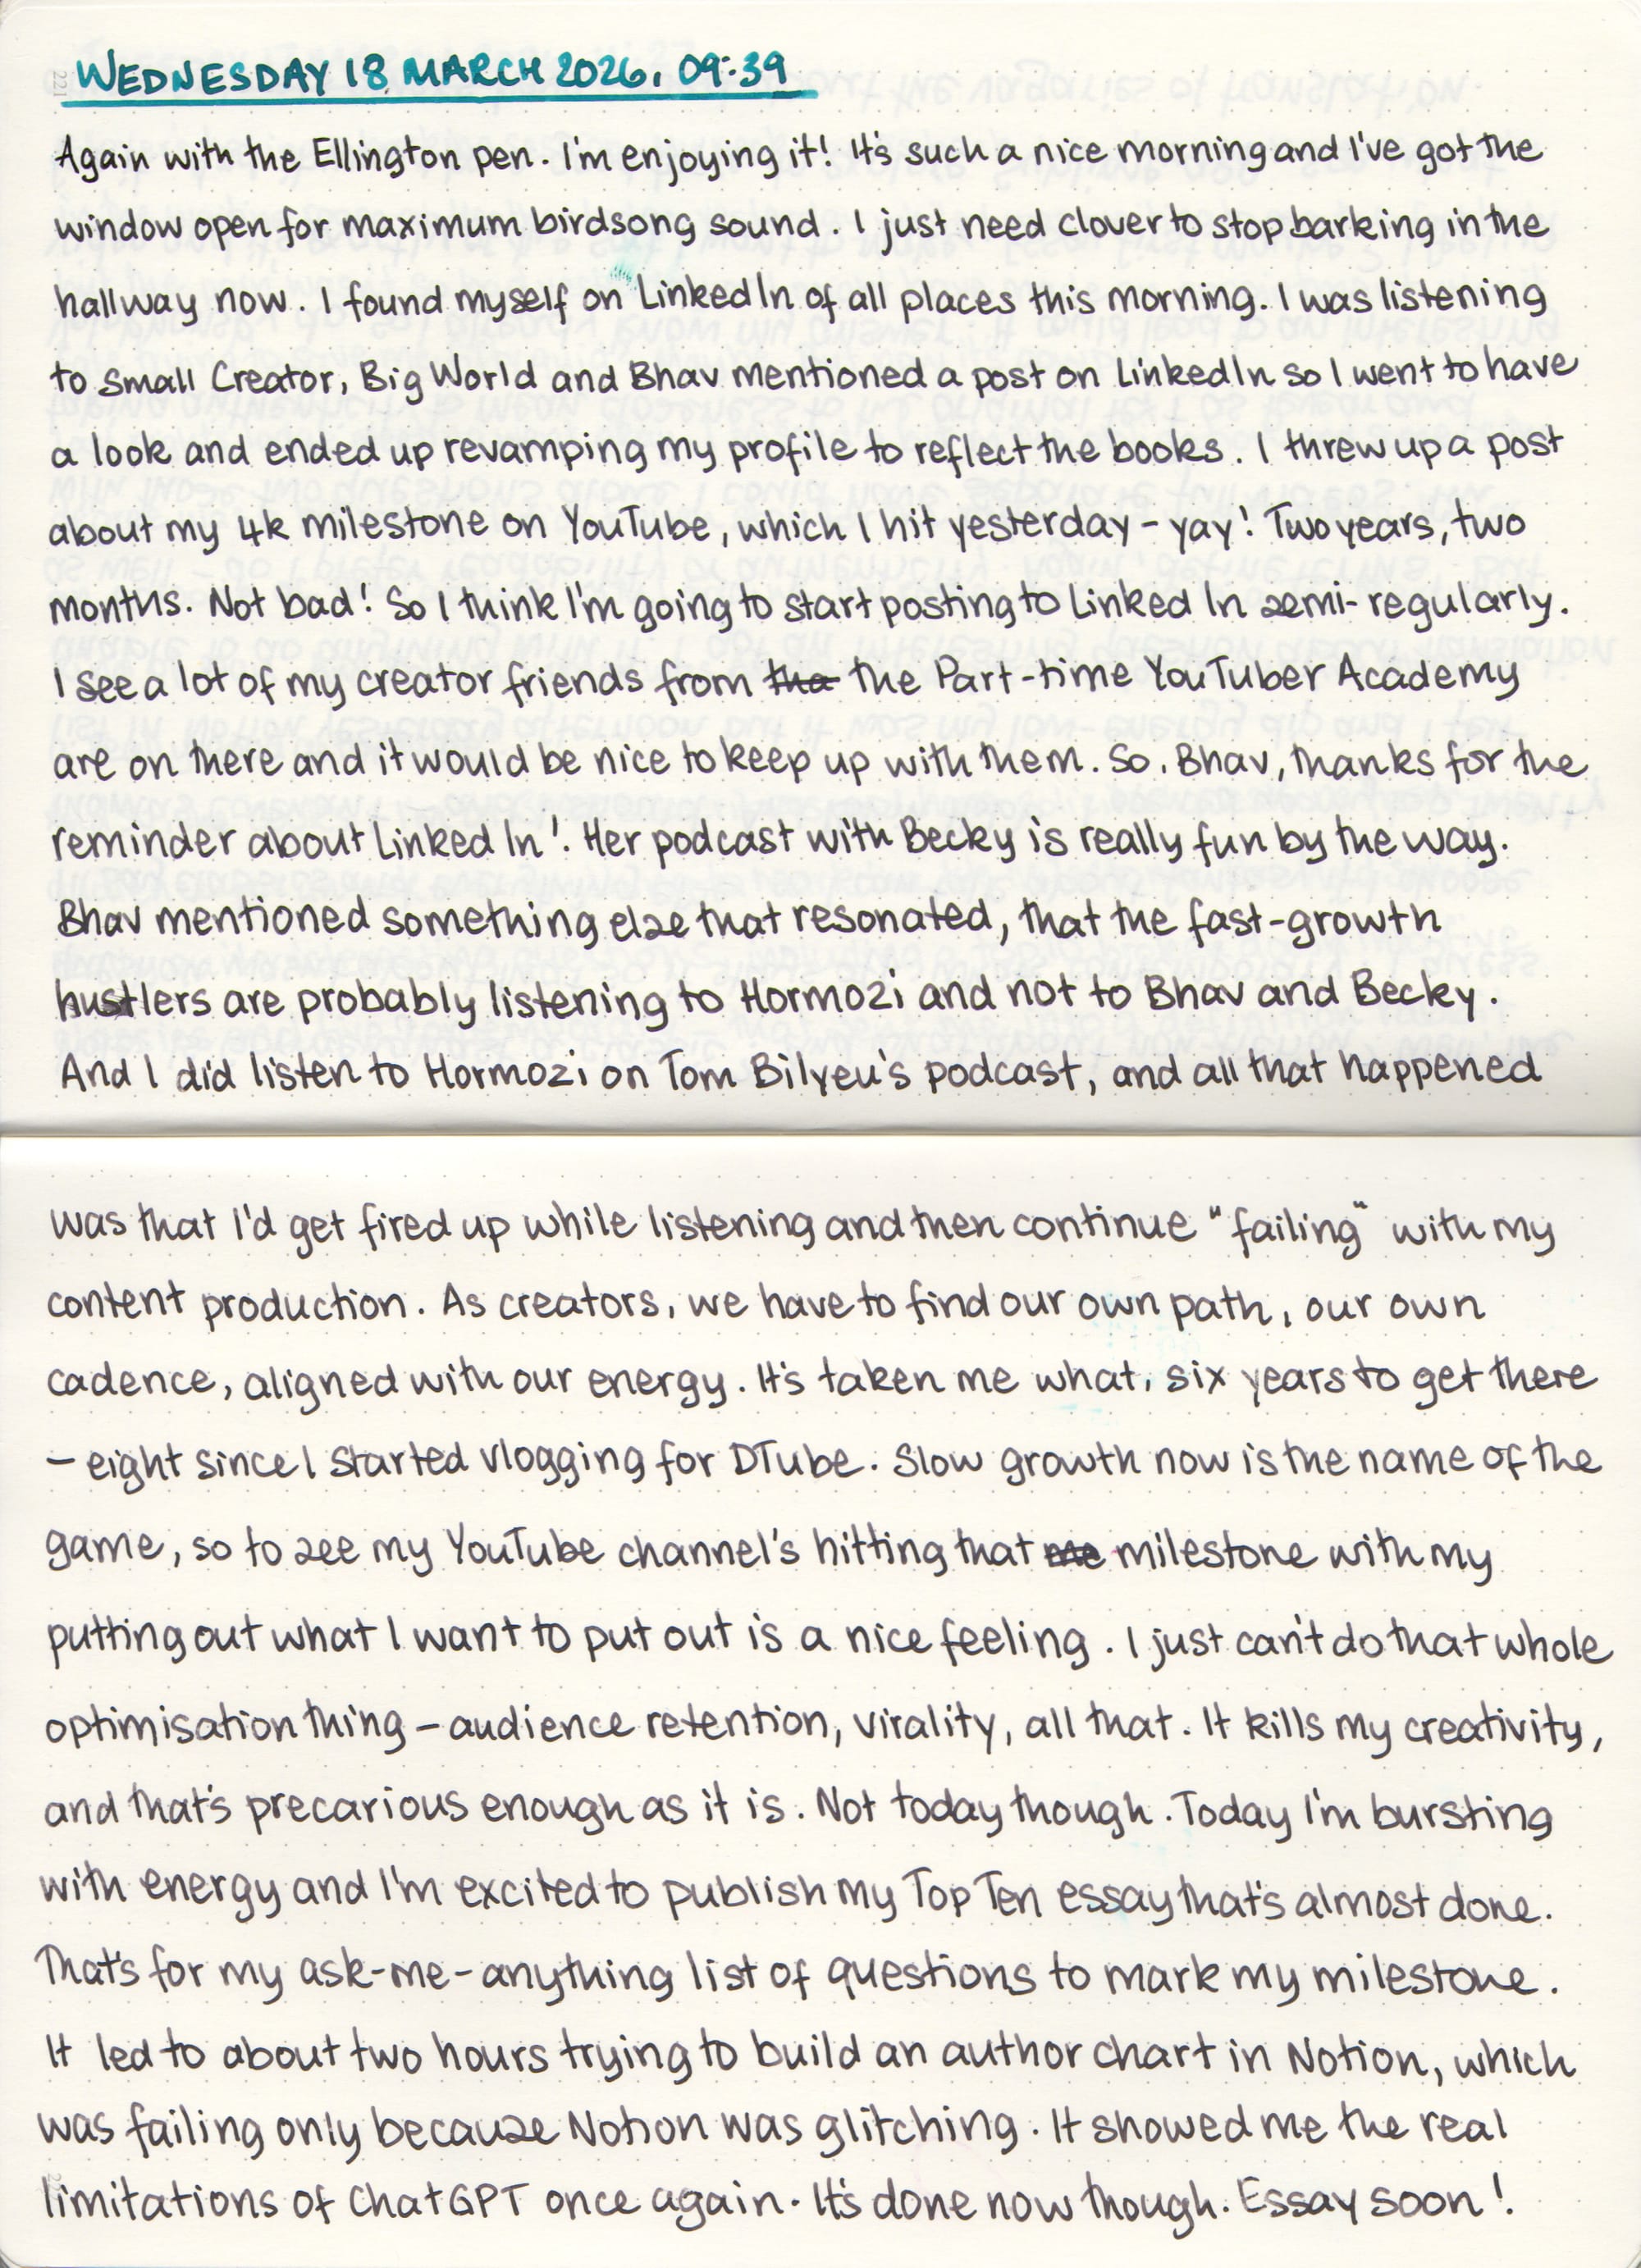 WEDNESDAY 18 MARCH 2026, 09:39
Again with the Ellington pen. I'm enjoying it! It's such a nice morning and I've got the
window open for maximum birdsong sound. I just need Clover to stop barking in the
hallway now. I found myself on LinkedIn of all places this morning. I was listening
to Small Creator, Big World and Bhav mentioned a post on LinkedIn so I went to have
a look and ended up revamping my profile to reflect the books. I threw up a post
about my 4k milestone on YouTube, which I hit yesterday – yay! Two years, two
months. Not bad! So I think I'm going to start posting to LinkedIn semi-regularly.
I see a lot of my creator friends from tha the Part-time YouTuber Academy
are on there and it would be nice to keep up with them. So, Bhav, thanks for the
reminder about LinkedIn! Her podcast with Becky is really fun by the way.
Bhav mentioned something else that resonated, that the fast-growth
hustlers are probably listening to Hormozi and not to Bhav and Becky.
And I did listen to Hormozi on Tom Bilyeu's podcast, and all that happened
was that I'd get fired up while listening and then continue "failing" with my
content production. As creators, we have to find our own path, our own
cadence, aligned with our energy. It's taken me what, six years to get there
– eight since I started vlogging for DTube. Slow growth now is the name of the
game, so to see my YouTube channel's hitting that me milestone with my
putting out what I want to put out is a nice feeling. I just can't do that whole
optimisation thing – audience retention, virality, all that. It kills my creativity,
and that's precarious enough as it is. Not today though. Today I'm bursting
with energy and I'm excited to publish my Top Ten essay that's almost done.
That's for my ask-me-anything list of questions to mark my milestone.
It led to about two hours trying to build an author chart in Notion, which
was failing only because Notion was glitching. It showed me the real
limitations of ChatGPT once again. It's done now though. Essay soon!